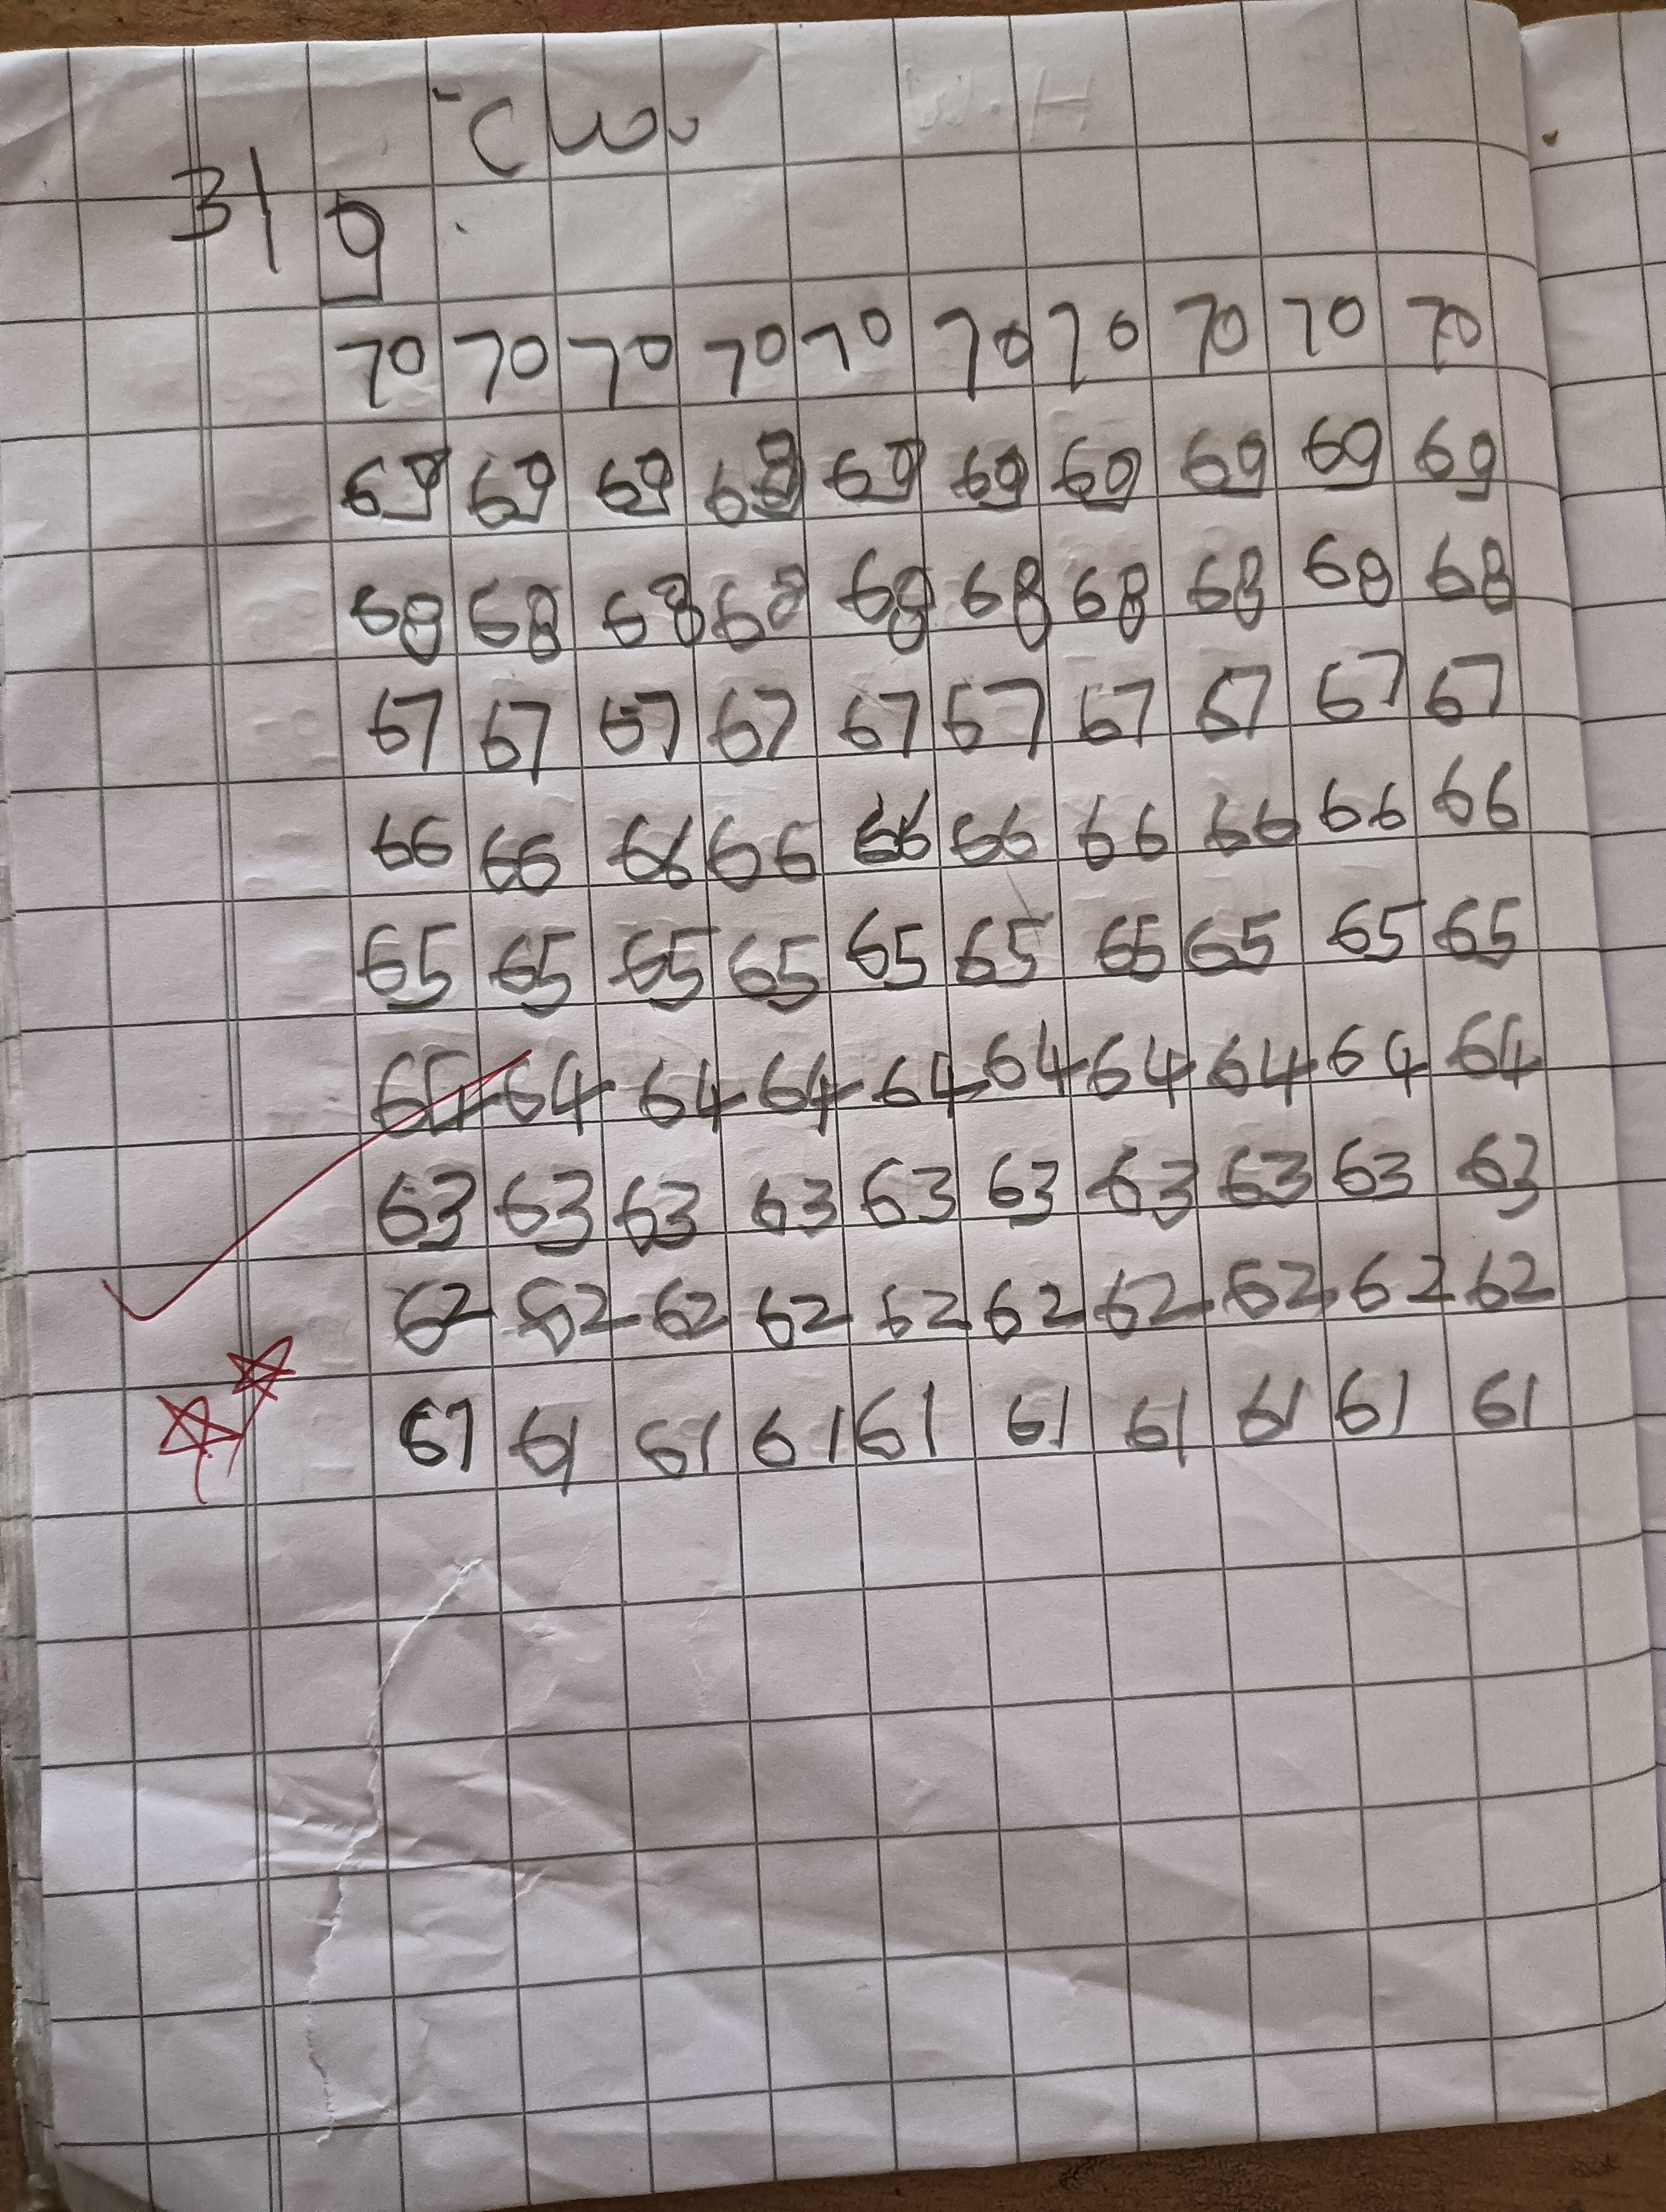 C.W.
3/9
70 70 70 70 70 70 70 70 70 70
69 69 69 69 69 69 69 69 69 69
68 68 68 68 68 68 68 68 68 68
67 67 67 67 67 67 67 67 67 67
66 66 66 66 66 66 66 66 66 66
65 65 65 65 65 65 65 65 65 65
64 64 64 64 64 64 64 64 64 64
63 63 63 63 63 63 63 63 63 63
62 62 62 62 62 62 62 62 62 62
61 61 61 61 61 61 61 61 61 61